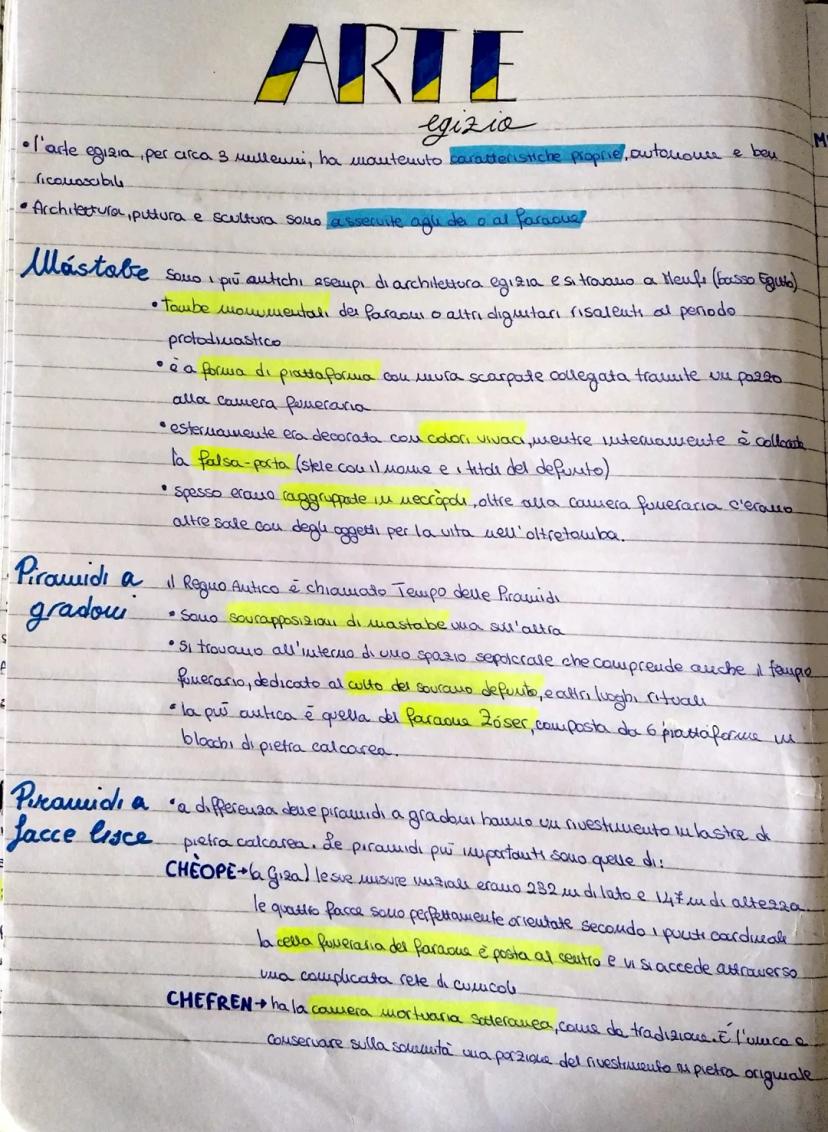 ARTE
egizia
• l'arte egizia, per circa 3 millenni, ha mantenuto caratteristiche proprie, autonome e ben
riconoscibili
• Architettura, pittura e scultura sono asservite agli dei o al faraone
Mástabe sono i più antichi esempi di architettura egizia e si trovano a Menfi (basso Egitto)
• tombe monumentali dei faraoni o altri dignitari risalenti al periodo
protodinastico
• è a forma di piattaforma con mura scarpate collegata tramite un pozzo
alla camera funeraria
• esternamente era decorata con colori vivaci, mentre internamente è collocata
la falsa-porta (stele con il nome e i titoli del defunto)
• spesso erano raggruppate in necròpoli, oltre alla camera funeraria c'erano
altre sale con degli oggetti per la vita nell'oltretomba.
Piramidi a il Regno Antico è chiamato Tempo delle Piramidi
gradoni • Sono sovrapposizioni di mastabe una sull'altra
• si trovano all'interno di uno spazio sepolcrale che comprende anche il tempio
funerario, dedicato al culto del sovrano defunto, e altri luoghi rituali
• la più antica è quella del faraone Zóser, composta da 6 piattaforme in
blocchi di pietra calcarea.
Piramidi a • a differenza delle piramidi a gradoni hanno un rivestimento in lastre di
facce lisce pietra calcarea. Le piramidi più importanti sono quelle di:
CHÈOPE → (a Giza) le sue misure iniziali erano 232 m di lato e 147 m di altezza
le quattro facce sono perfettamente orientate secondo i punti cardinali
la cella funeraria del faraone è posta al centro e vi si accede attraverso
una complicata rete di cunicoli
CHEFREN → ha la camera mortuaria sotteranea, come da tradizione. È l'unica a
conservare sulla sommità una porzione del rivestimento in pietra originale